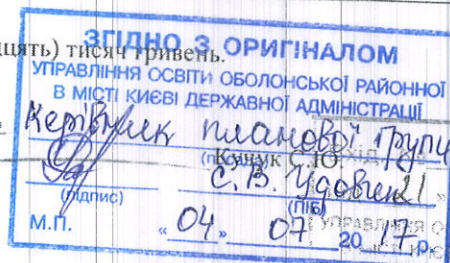 цять) тисяч гривень.
ЗГІДНО З ОРИГІНАЛОМ
УПРАВЛІННЯ ОСВІТИ ОБОЛОНСЬКОЇ РАЙОННОЇ
В МІСТІ КИЄВІ ДЕРЖАВНОЇ АДМІНІСТРАЦІЇ
Керівник планової групи
Кучук С.Ю.
С. В. Удовч
21 »
(підпис) (ПІБ)
М.П. « 04 » 07 20 17 р.